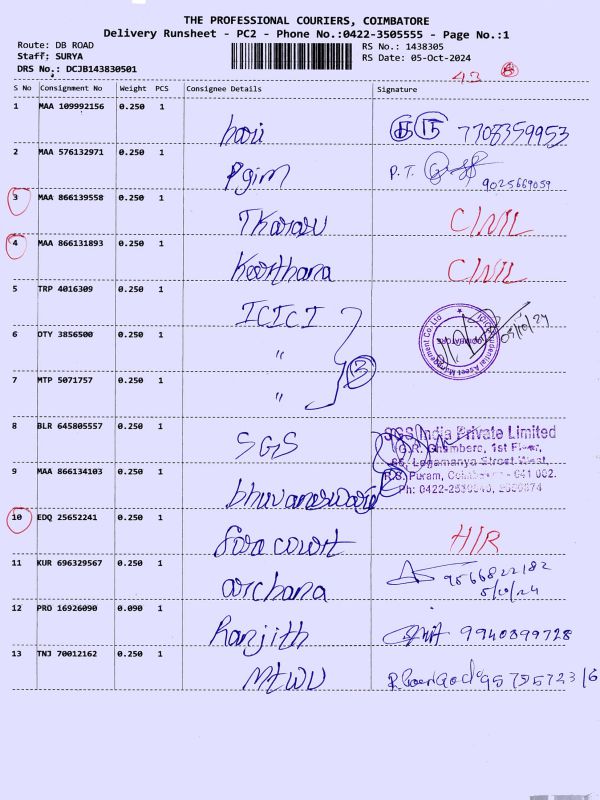 THE PROFESSIONAL COURIERS, COIMBATORE
Delivery Runsheet - PC2 - Phone No.:0422-3505555 - Page No.:1
Route: DB ROAD
RS No.: 1438305
Staff: SURYA
RS Date: 05-Oct-2024
DRS No.: DCJB143830501
43
S No Consignment No Weight PCS Consignee Details Signature
1 MAA 109992156 0.250 1 hari 7708359953
2 MAA 576132971 0.250 1 Pgim P.T. 9025669059
3 MAA 866139558 0.250 1
4 MAA 866131893 0.250 1 Keerthana
5 TRP 4016309 0.250 1 ICICI
05/10/24
6 OTY 3856500 0.250 1 "
3
7 MTP 5071757 0.250 1 "
8 BLR 645805557 0.250 1 SGS
SGS India Private Limited
G.R. Chambers, 1st Floor,
Logamanya Street West,
R.S. Puram, Coimbatore - 641 002.
9 MAA 866134103 0.250 1 bhuvaneswari
10 EDQ 25652241 0.250 1 court
11 KUR 696329567 0.250 1 archana 9566822182
5/10/24
12 PRO 16926090 0.090 1 Ranjith 9940899728
13 TNJ 70012162 0.250 1